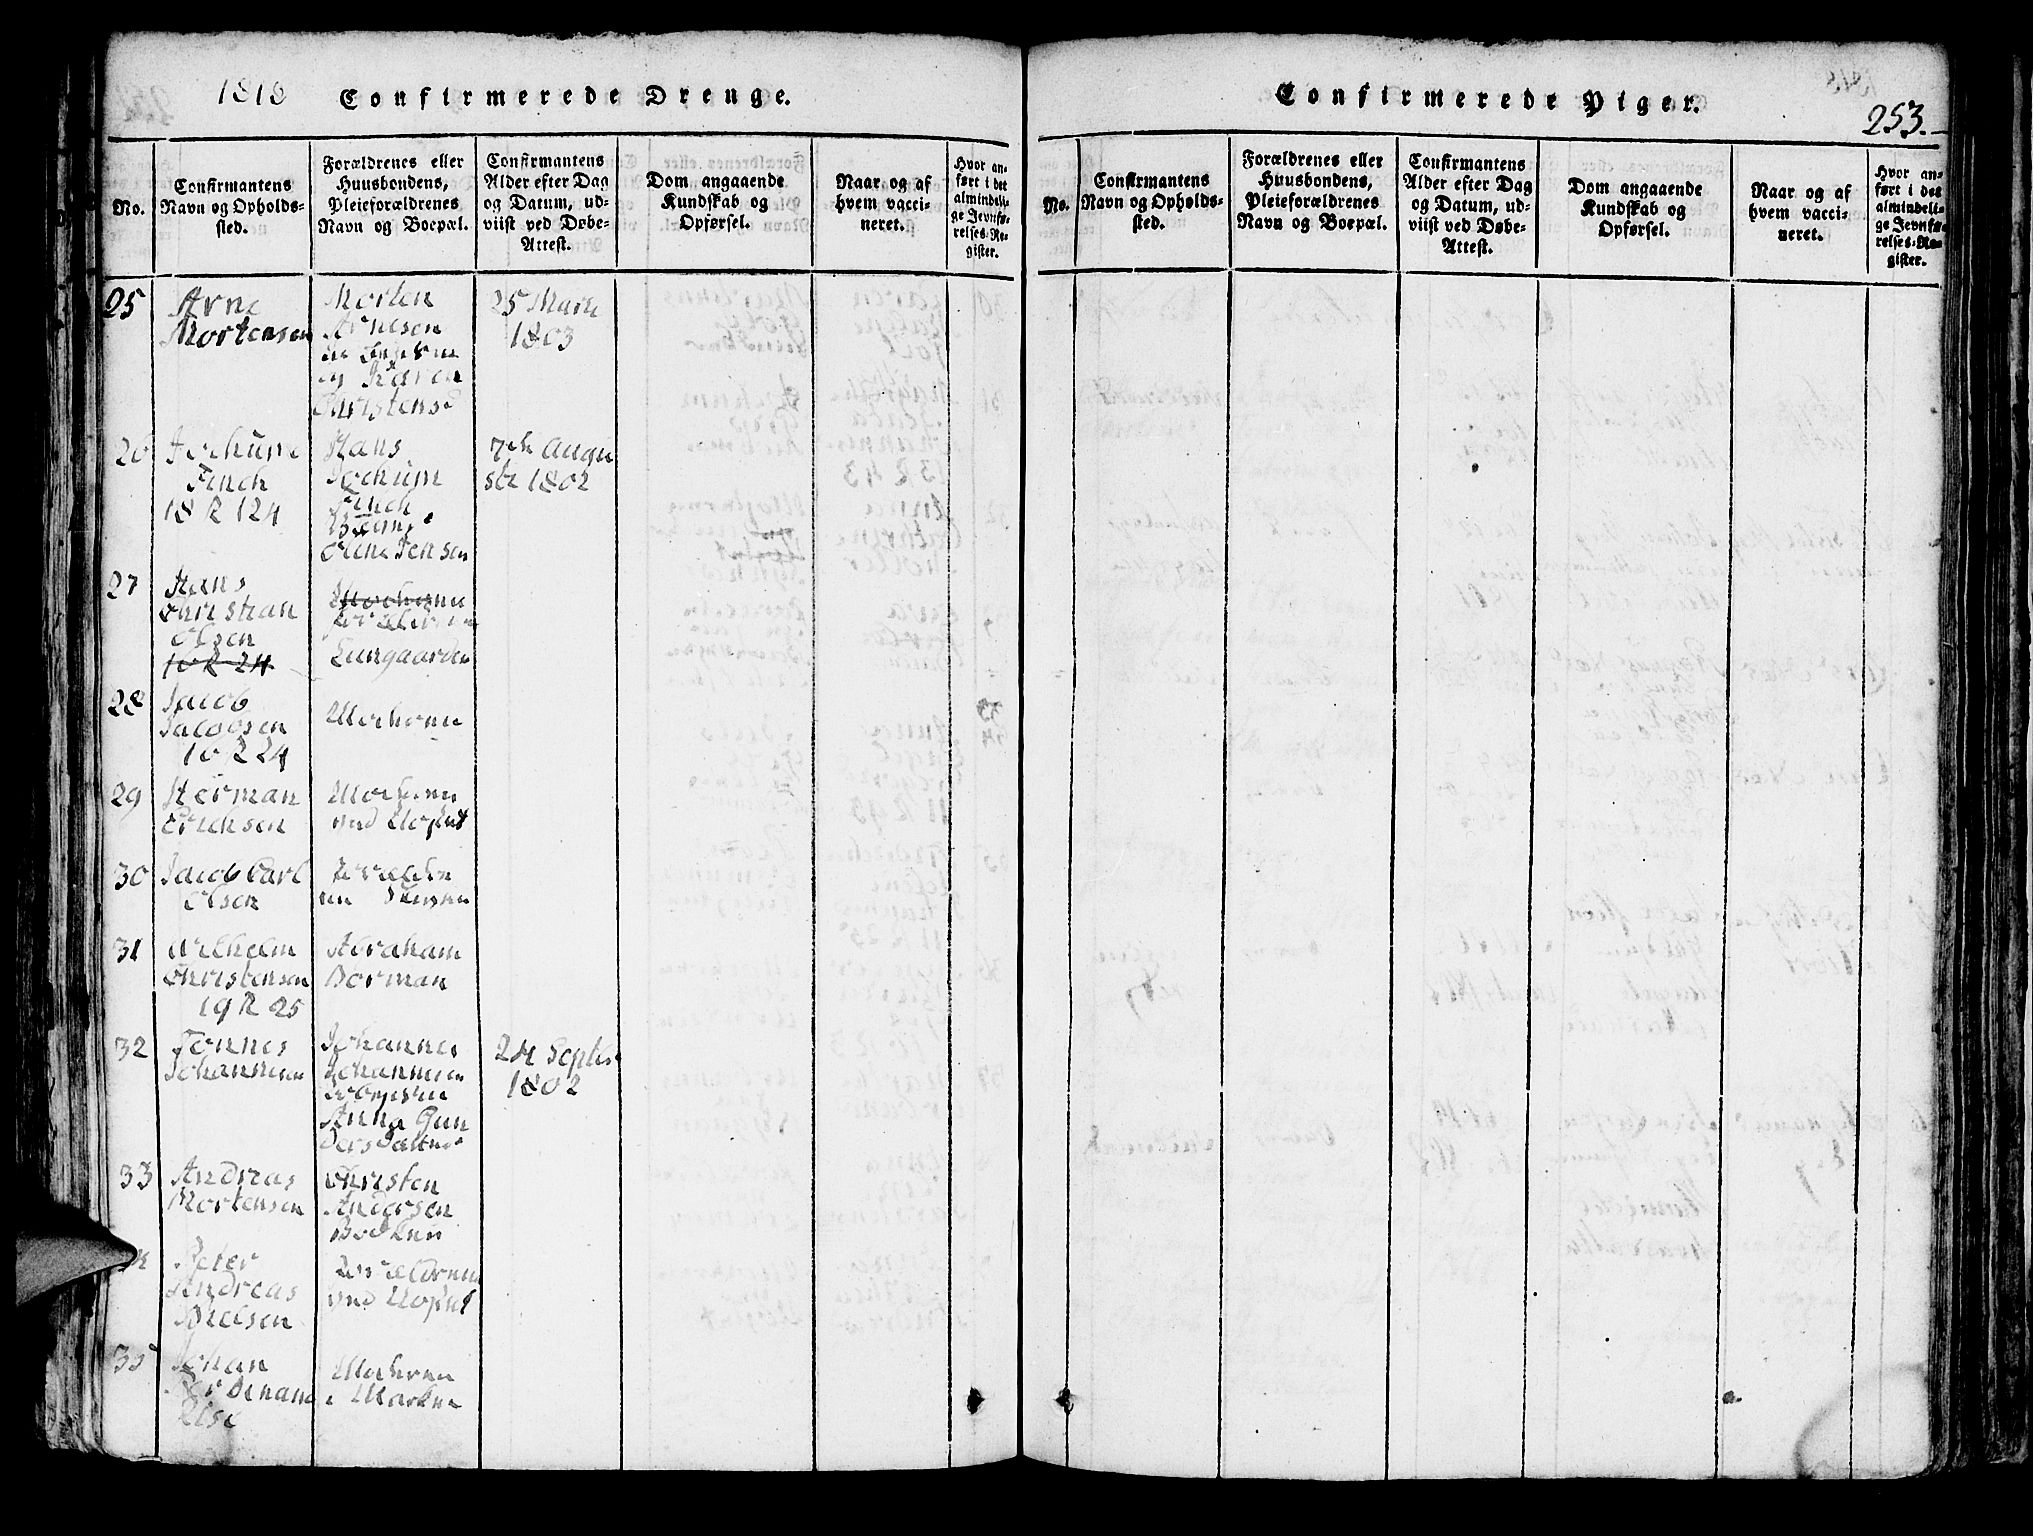 1818
Confirmerede Drenge.
No.
Confirmantens
Navn og Opholds-
sted.
Forældrenes eller
Huusbondens,
Pleieforældrenes
Navn og Boepæl.
Confirmantens
Alder efter Dag
og Datum, ud-
viist ved Døbe-
Attest.
Dom angaaende
Kundskab og
Opførsel.
Naar og af
hvem vacci-
neret.
Hvor an-
ført i det
almindeli-
ge Jevnfø-
relses-Re-
gister.
25
Arne
Mortensen
Morten
Arnesen
og Karen
Christens
25 Marti
1803
26
Jochum
Finch
18 R 124
Hans
Jochum
Finch
Oline Jensen
7de Augu
sti 1802
27
Hans
Christian
Olsen
10 R 24
Lungaarden
28
Jacob
Jacobsen
10 R 24
29
Herman
Erichsen
30
Jacob Carl
Olsen
31
Wilhelm
Christensen
19 R 25
Abraham
Borman
32
Tönnes
Johannesen
Johannes
Johannesen
Anna Gun
dersdatter
24 Septbr
1802
33
Andreas
Mortensen
Christen
Andersen
34
Peter
Andreas
Nielsen
35
Johan
Ferdinand
Confirmerede Piger.
253.
No.
Confirmantens
Navn og Opholds-
sted.
Forældrenes eller
Huusbondens,
Pleieforældrenes
Navn og Boepæl.
Confirmantens
Alder efter Dag
og Datum, ud-
viist ved Døbe-
Attest.
Dom angaaende
Kundskab og
Opførsel.
Naar og af
hvem vacci-
neret.
Hvor an-
ført i det
almindeli-
ge Jevnfø-
relses-Re-
gister.